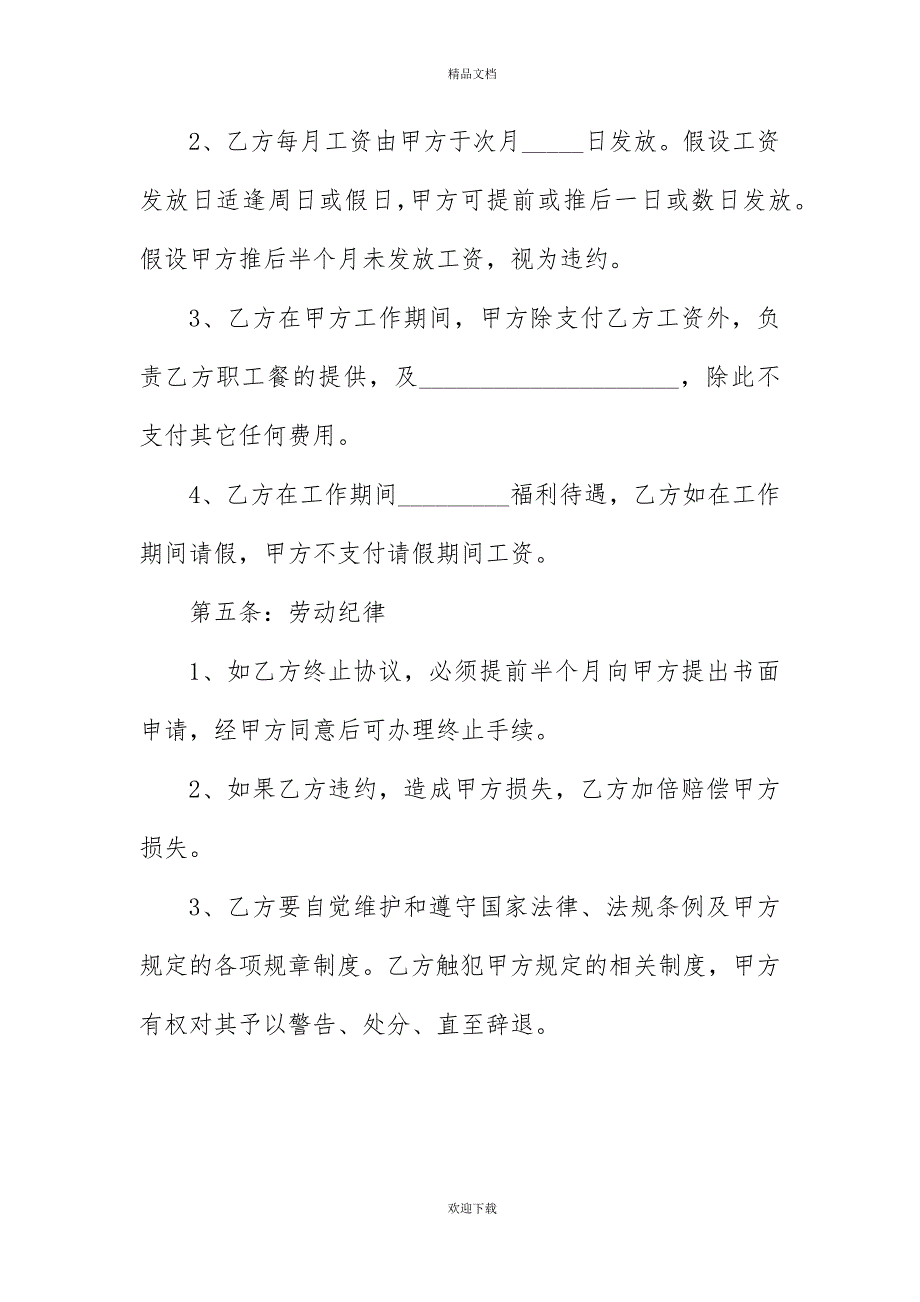 精品文档
2、乙方每月工资由甲方于次月_____日发放。假设工资
发放日适逢周日或假日，甲方可提前或推后一日或数日发放。
假设甲方推后半个月未发放工资，视为违约。
3、乙方在甲方工作期间，甲方除支付乙方工资外，负
责乙方职工餐的提供，及_____________________，除此不
支付其它任何费用。
4、乙方在工作期间_________福利待遇，乙方如在工作
期间请假，甲方不支付请假期间工资。
第五条：劳动纪律
1、如乙方终止协议，必须提前半个月向甲方提出书面
申请，经甲方同意后可办理终止手续。
2、如果乙方违约，造成甲方损失，乙方加倍赔偿甲方
损失。
3、乙方要自觉维护和遵守国家法律、法规条例及甲方
规定的各项规章制度。乙方触犯甲方规定的相关制度，甲方
有权对其予以警告、处分、直至辞退。
欢迎下载